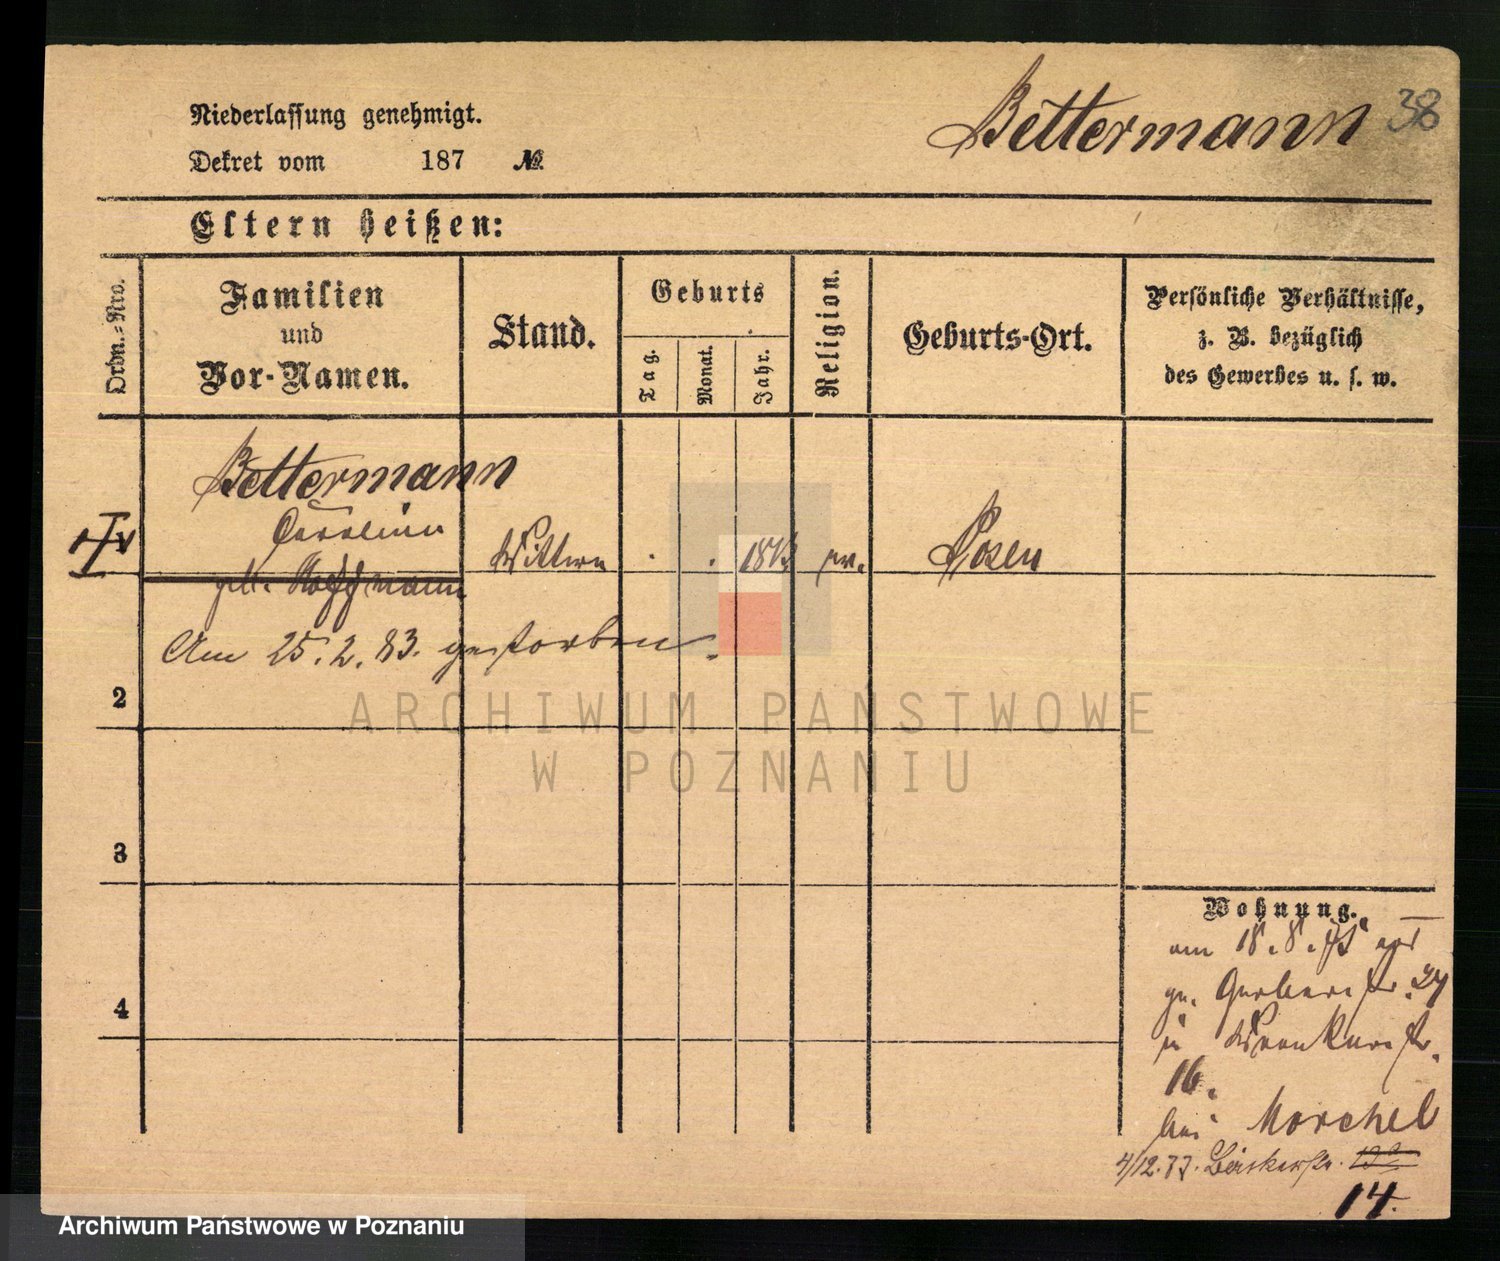 Bettermann 38
Niederlassung genehmigt.
Dekret vom 187 №
Eltern heißen:
Ordn.-Nro.
Familien
und
Vor-Namen.
Stand.
Geburts
Tag.
Monat.
Jahr.
Religion.
Geburts-Ort.
Persönliche Verhältnisse,
z. B. bezüglich
des Gewerbes u. s. w.
Bettermann
Caroline
geb. Hoffmann
Wittwe
ev.
Posen
Am 25. 2. 83. gestorben.
2
3
4
ARCHIWUM PAŃSTWOWE
W POZNANIU
Wohnung.
am 18. 8.
Gerberstr. 27
in Wronkerstr.
16.
bei Morchel
4/12. 77. Bäckerstr.
14.
Archiwum Państwowe w Poznaniu